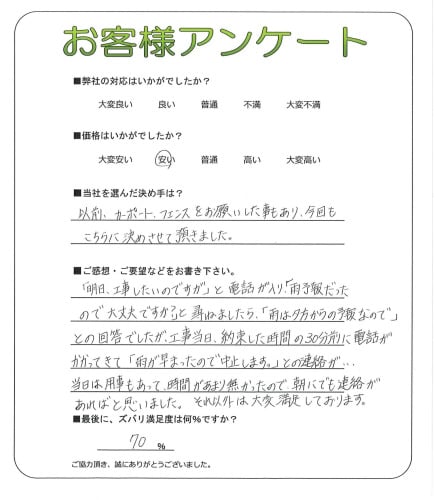 お客様アンケート
■弊社の対応はいかがでしたか？
大変良い 良い 普通 不満 大変不満
■価格はいかがでしたか？
大変安い 安い 普通 高い 大変高い
■当社を選んだ決め手は？
以前、カーポート、フェンスをお願いした事もあり、今回も
こちらに決めさせて頂きました。
■ご感想・ご要望などをお書き下さい。
「明日、工事したいのですが」と電話が入り、「雨予報だった
ので大丈夫ですか？」と尋ねましたら、「雨は夕方からの予報なので」
との回答でしたが、工事当日、約束した時間の30分前に電話が
かかってきて「雨が早まったので中止します。」との連絡が…
当日は用事もあって、時間があまり無かったので、朝にでも連絡が
あればと思いました。それ以外は大変満足しております。
■最後に、ズバリ満足度は何％ですか？
70 ％
ご協力頂き、誠にありがとうございました。